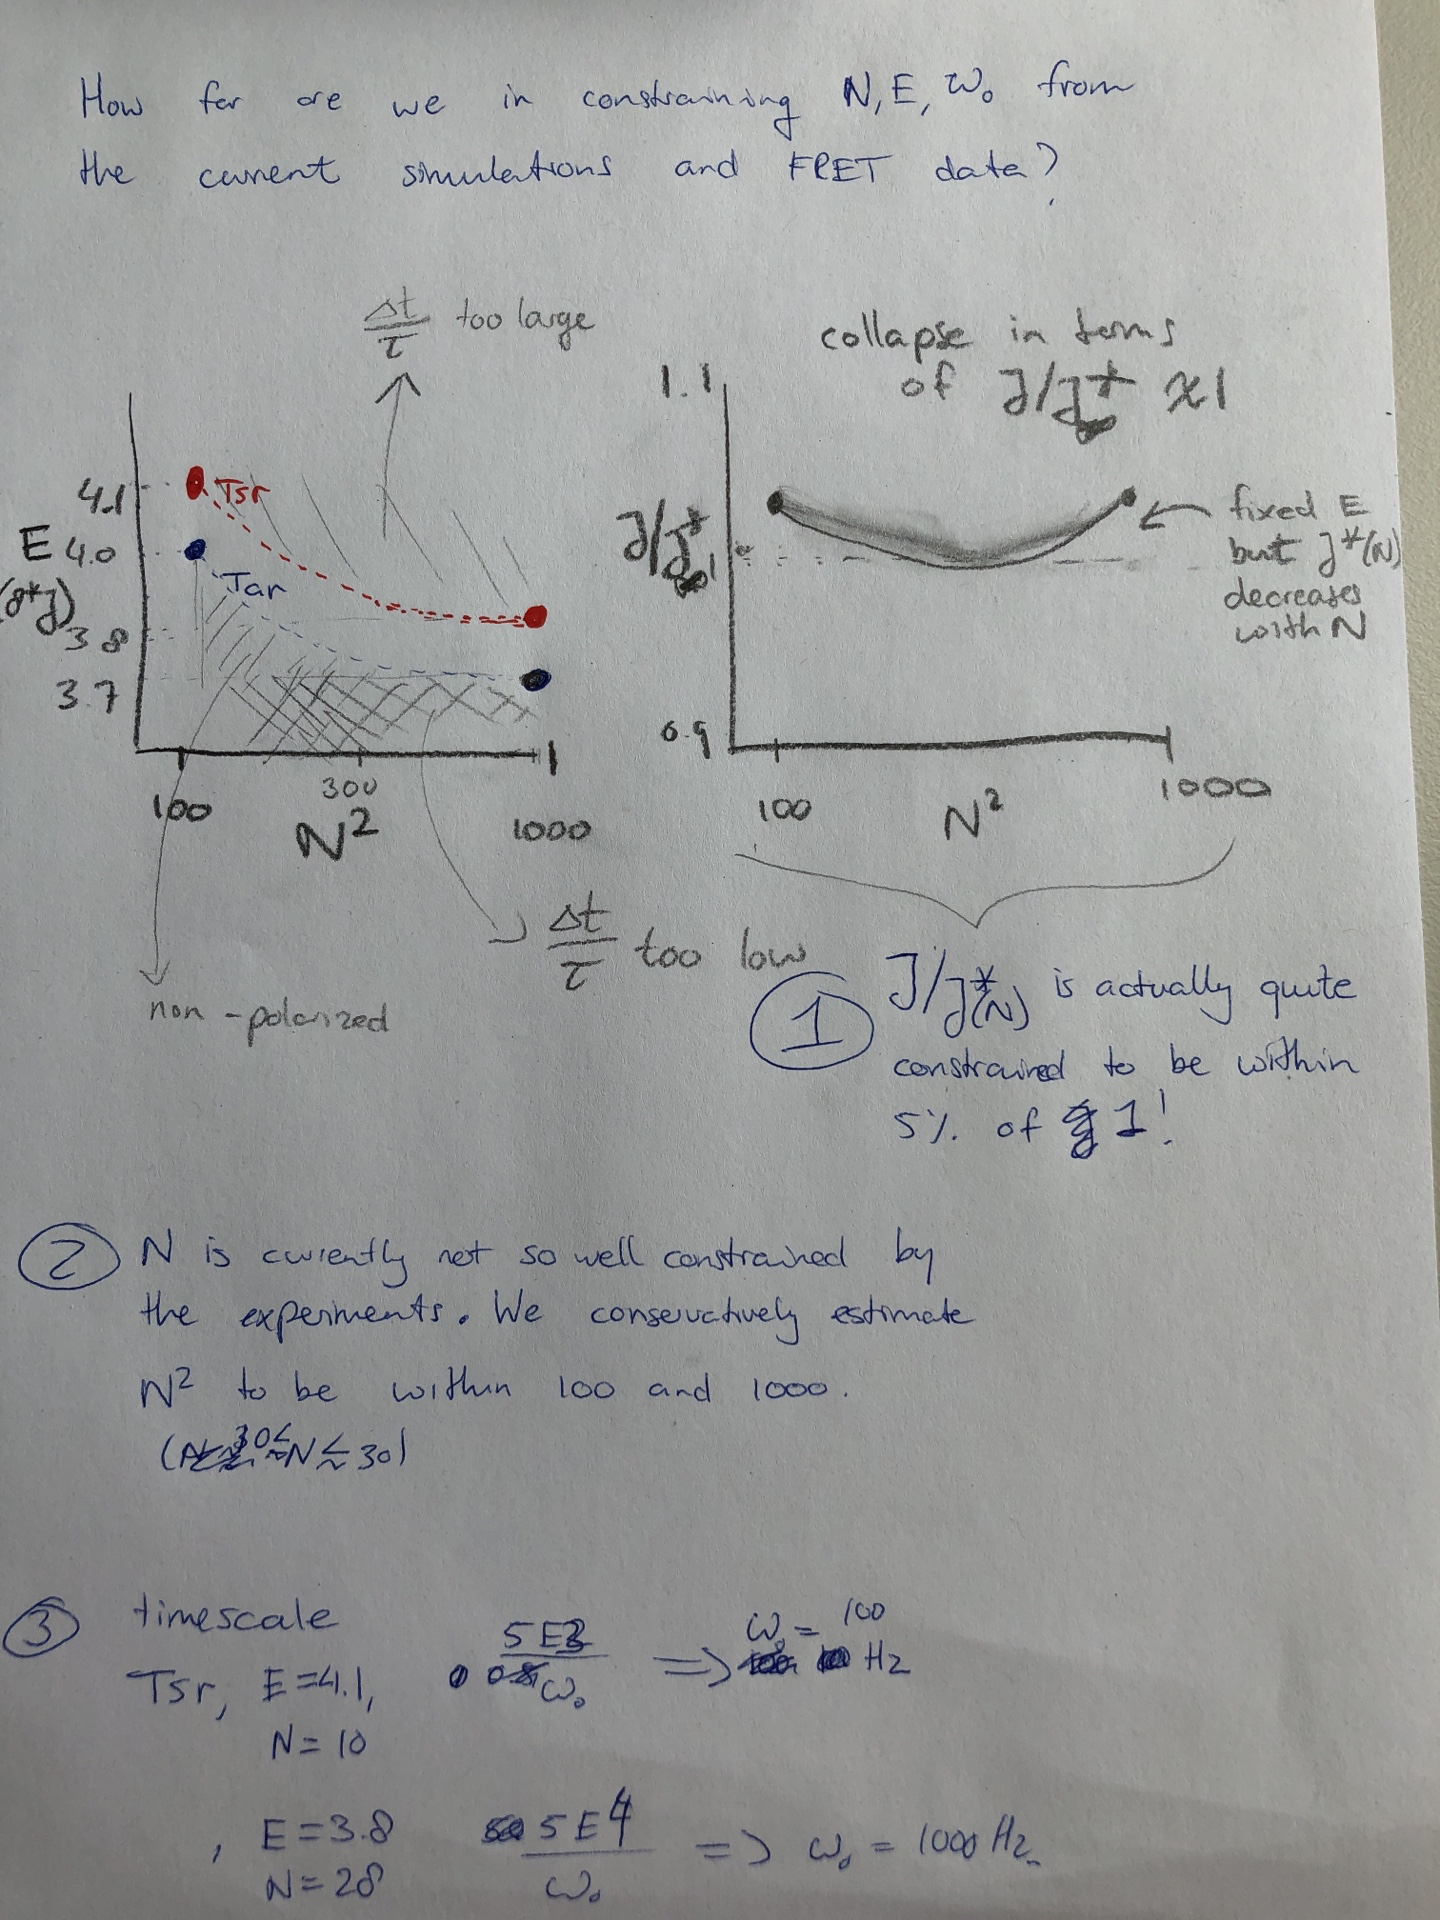 How far are we in constraining N, E, ω₀ from
the current simulations and FRET data?
Δt/τ too large
4.1
Tsr
E 4.0
Tar
3.8
3.7
100
300
1000
N²
non-polarized
Δt/τ too low
collapse in terms
of J/J* ≈1
1.1
J/J*
1
0.9
100
1000
N²
fixed E
but J*(N)
decreases
with N
① J/J*(N) is actually quite
constrained to be within
5% of 1!
② N is currently not so well constrained by
the experiments. We conservatively estimate
N² to be within 100 and 1000.
N ≲ 30)
③ timescale
Tsr, E=4.1, 5E3/ω₀ => ω₀ = 100 Hz
N=10
, E=3.8 5E4/ω₀ => ω₀ = 1000 Hz
N=28